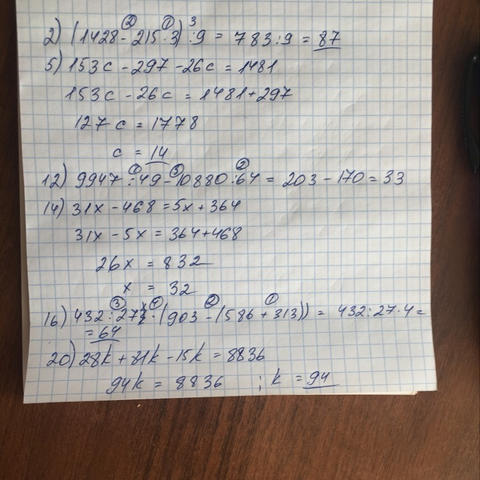 2) (1428 - 215 · 3) : 9 = 783 : 9 = 87
5) 153c - 297 - 26c = 1481
153c - 26c = 1481 + 297
127c = 1778
c = 14
12) 9947 : 49 - 10880 : 64 = 203 - 170 = 33
14) 31x - 468 = 5x + 364
31x - 5x = 364 + 468
26x = 832
x = 32
16) 432 : 27 · (903 - (586 + 313)) = 432 : 27 · 4 =
= 64
20) 28k + 81k - 15k = 8836
94k = 8836 ; k = 94